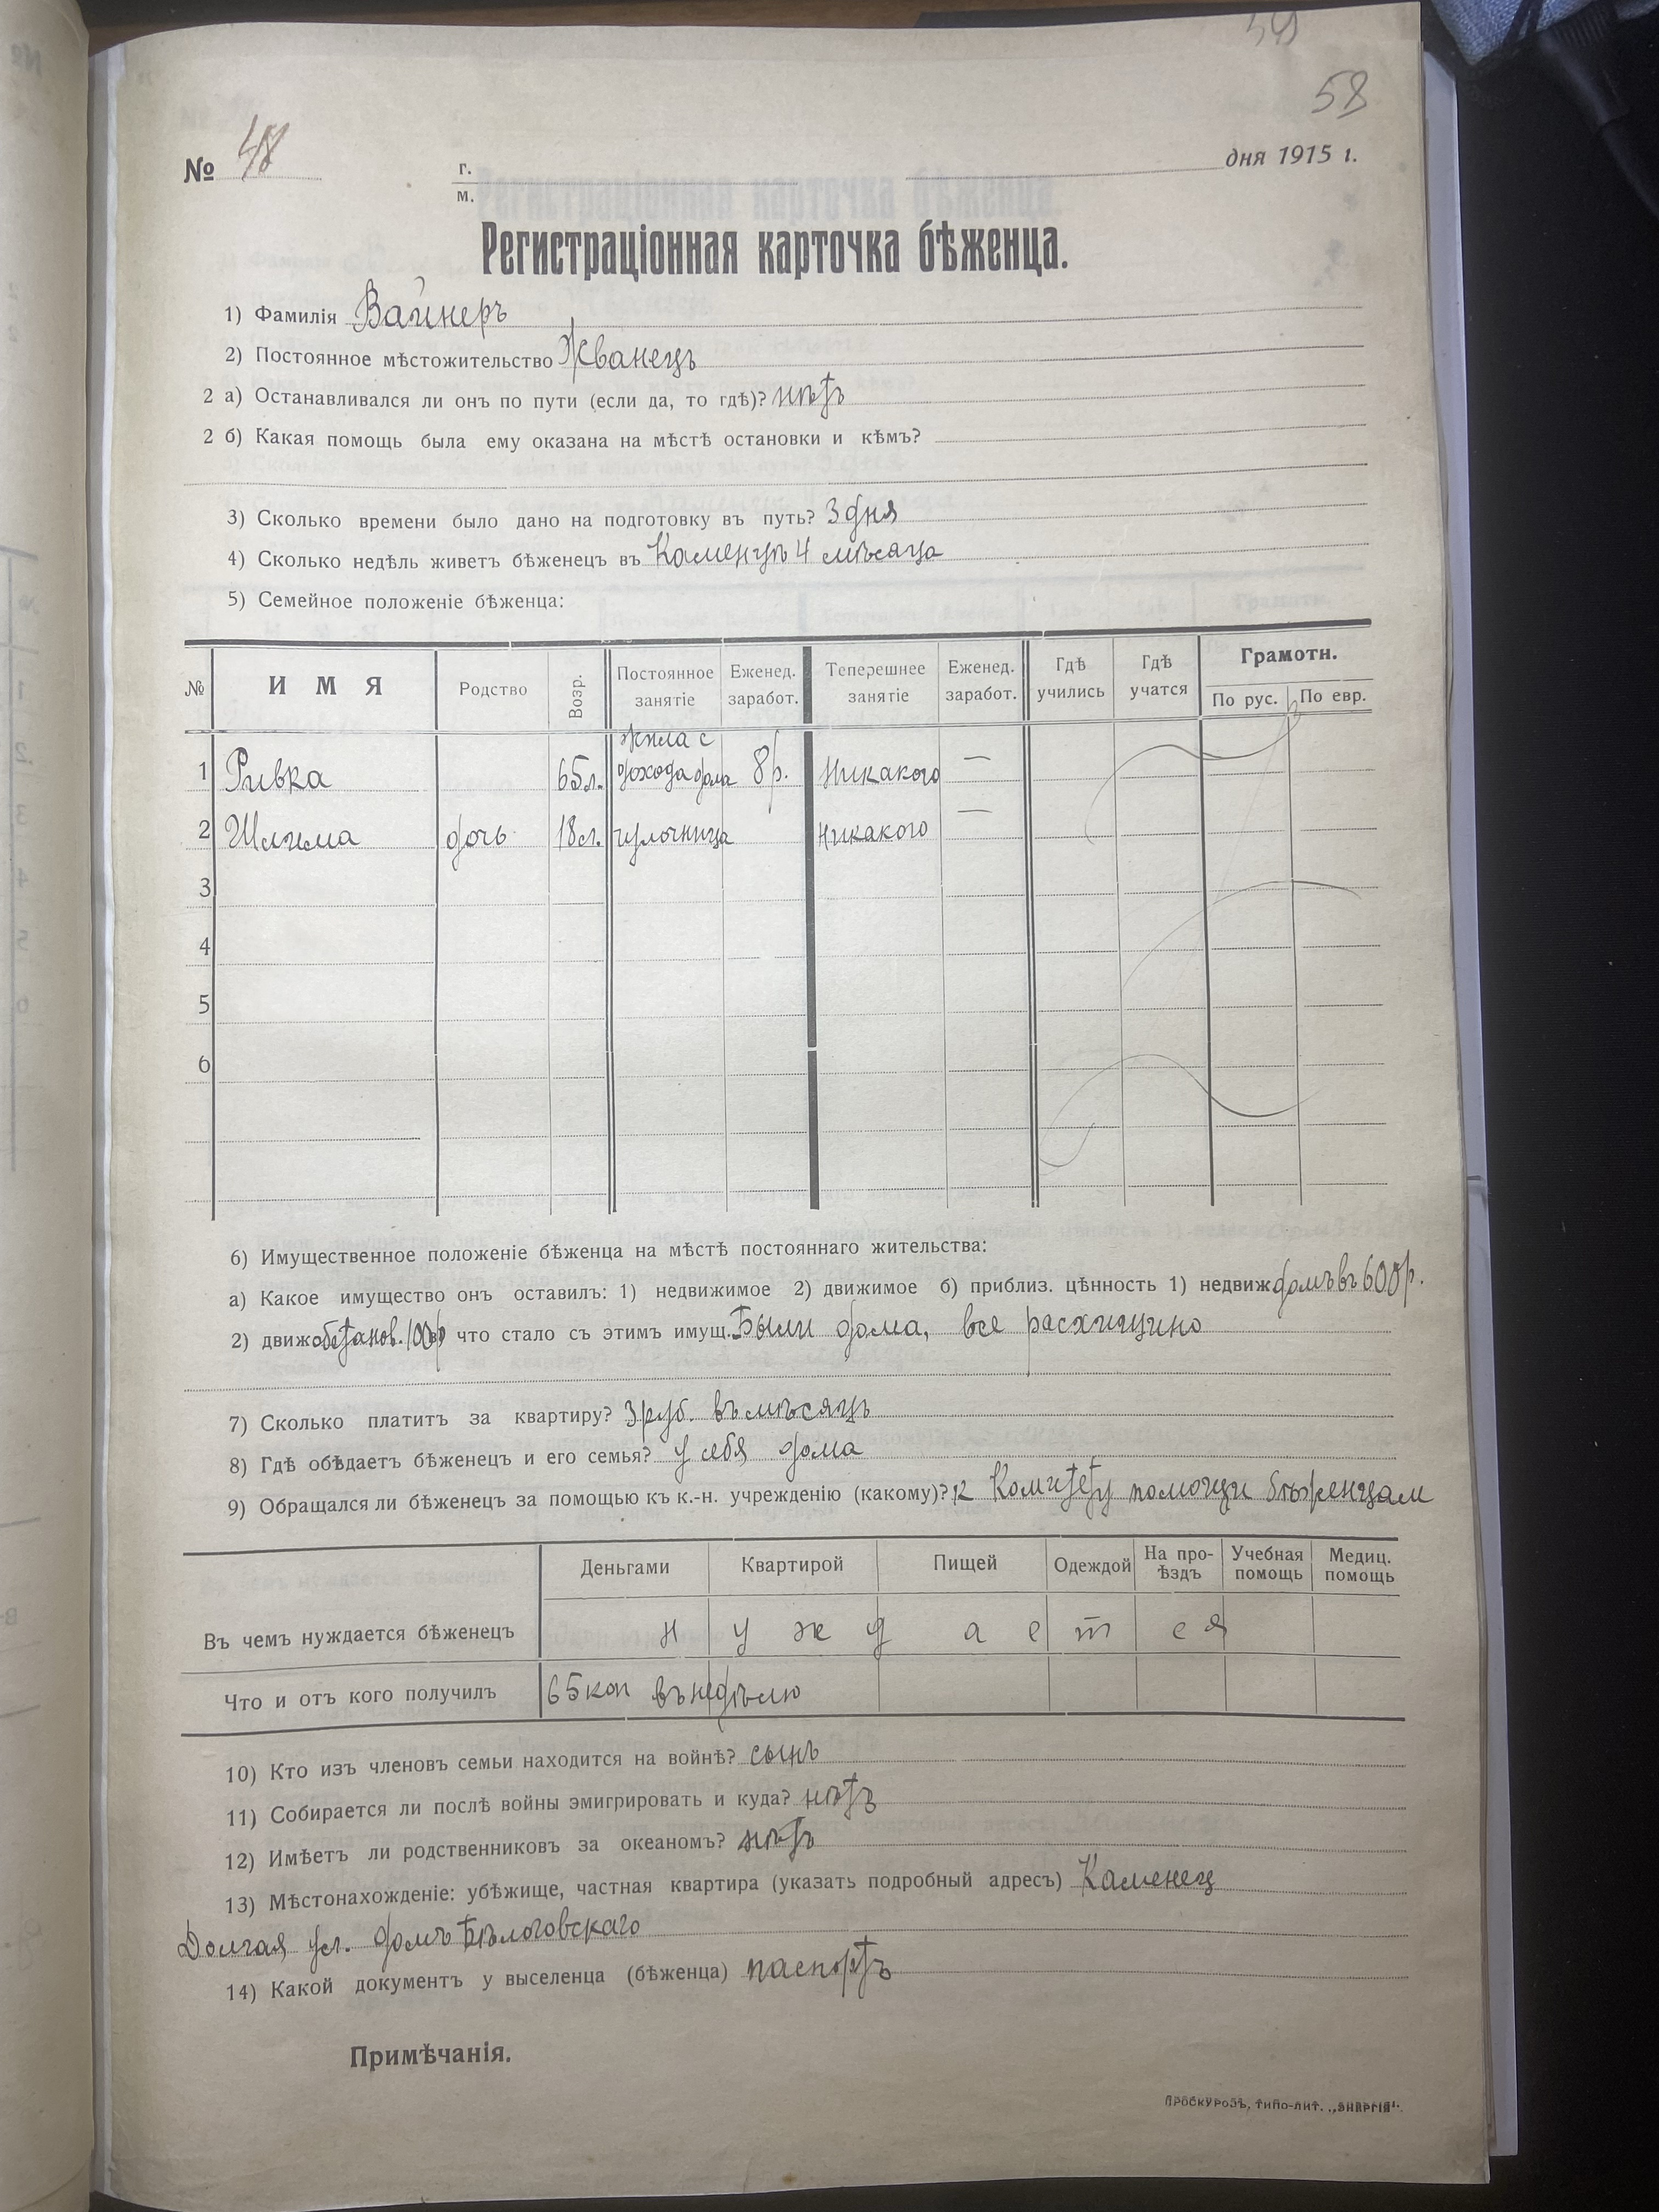 58
№ 48 г. дня 1915 г.
м.
Регистраціонная карточка бѣженца.
1) Фамилія Вайнеръ
2) Постоянное мѣстожительство Жванецъ
2 а) Останавливался ли онъ по пути (если да, то гдѣ)? нѣтъ
2 б) Какая помощь была ему оказана на мѣстѣ остановки и кѣмъ?
3) Сколько времени было дано на подготовку въ путь? 3 дня
4) Сколько недѣль живетъ бѣженецъ въ Каменцѣ 4 мѣсяца
5) Семейное положеніе бѣженца:
№ ИМЯ Родство Возр. Постоянное занятіе Еженед. заработ. Теперешнее занятіе Еженед. заработ. Гдѣ учились Гдѣ учатся Грамотн. По рус. По евр.
1 Ривка 65 л. жила с дохода дома 8 р. Никакого —
2 Шлима дочь 18 л. чулочница никакого —
3
4
5
6
6) Имущественное положеніе бѣженца на мѣстѣ постояннаго жительства:
а) Какое имущество онъ оставилъ: 1) недвижимое 2) движимое б) приблиз. цѣнность 1) недвиж домъ въ 600 р.
2) движ обстанов. 100 р в) что стало съ этимъ имущ. Были дома, все расхищино
7) Сколько платитъ за квартиру? 3 руб. въ мѣсяцъ
8) Гдѣ обѣдаетъ бѣженецъ и его семья? у себя дома
9) Обращался ли бѣженецъ за помощью къ к.-н. учрежденію (какому)? к Комитету помощи бѣженцам
Деньгами Квартирой Пищей Одеждой На про-ѣздъ Учебная помощь Медиц. помощь
Въ чемъ нуждается бѣженецъ н у ж д а е т с я
Что и отъ кого получилъ 65 коп въ недѣлю
10) Кто изъ членовъ семьи находится на войнѣ? сынъ
11) Собирается ли послѣ войны эмигрировать и куда? нѣтъ
12) Имѣетъ ли родственниковъ за океаномъ? нѣтъ
13) Мѣстонахожденіе: убѣжище, частная квартира (указать подробный адресъ) Каменец
Долгая ул. домъ Бѣлоговскаго
14) Какой документъ у выселенца (бѣженца) паспортъ
Примѣчанія.
ПРОСКУРОВЪ, ТИПО-ЛИТ. „ЭНЕРГІЯ".